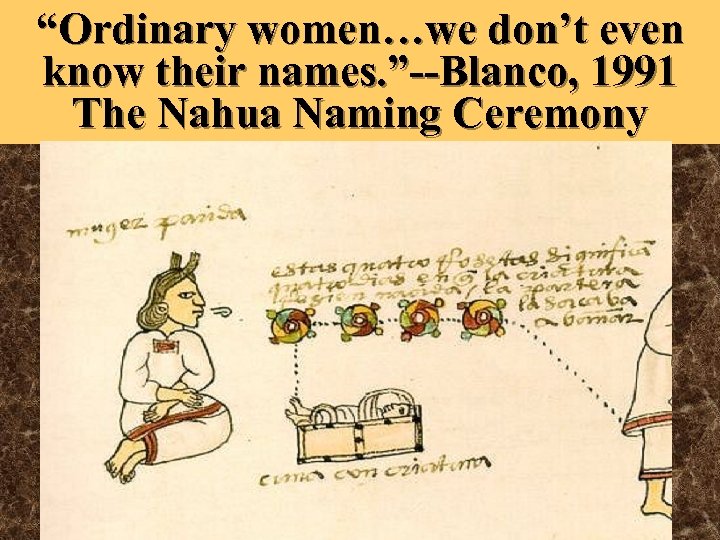 “Ordinary women…we don’t even
know their names.”--Blanco, 1991
The Nahua Naming Ceremony
muger parida
estas quatro rosetas significã
quatro dias en q̃ la criatura
rezien nacida / la partera
la sacaba
a bañar
cuna con criatura